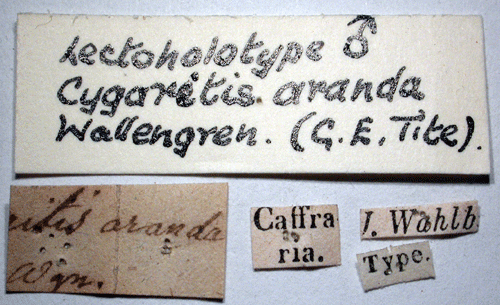 Lectoholotype ♂
Cygaritis aranda
Wallengren. (G. E. Tite).
itis aranda
Wgn.
Caffra
ria.
J. Wahlb
Type.